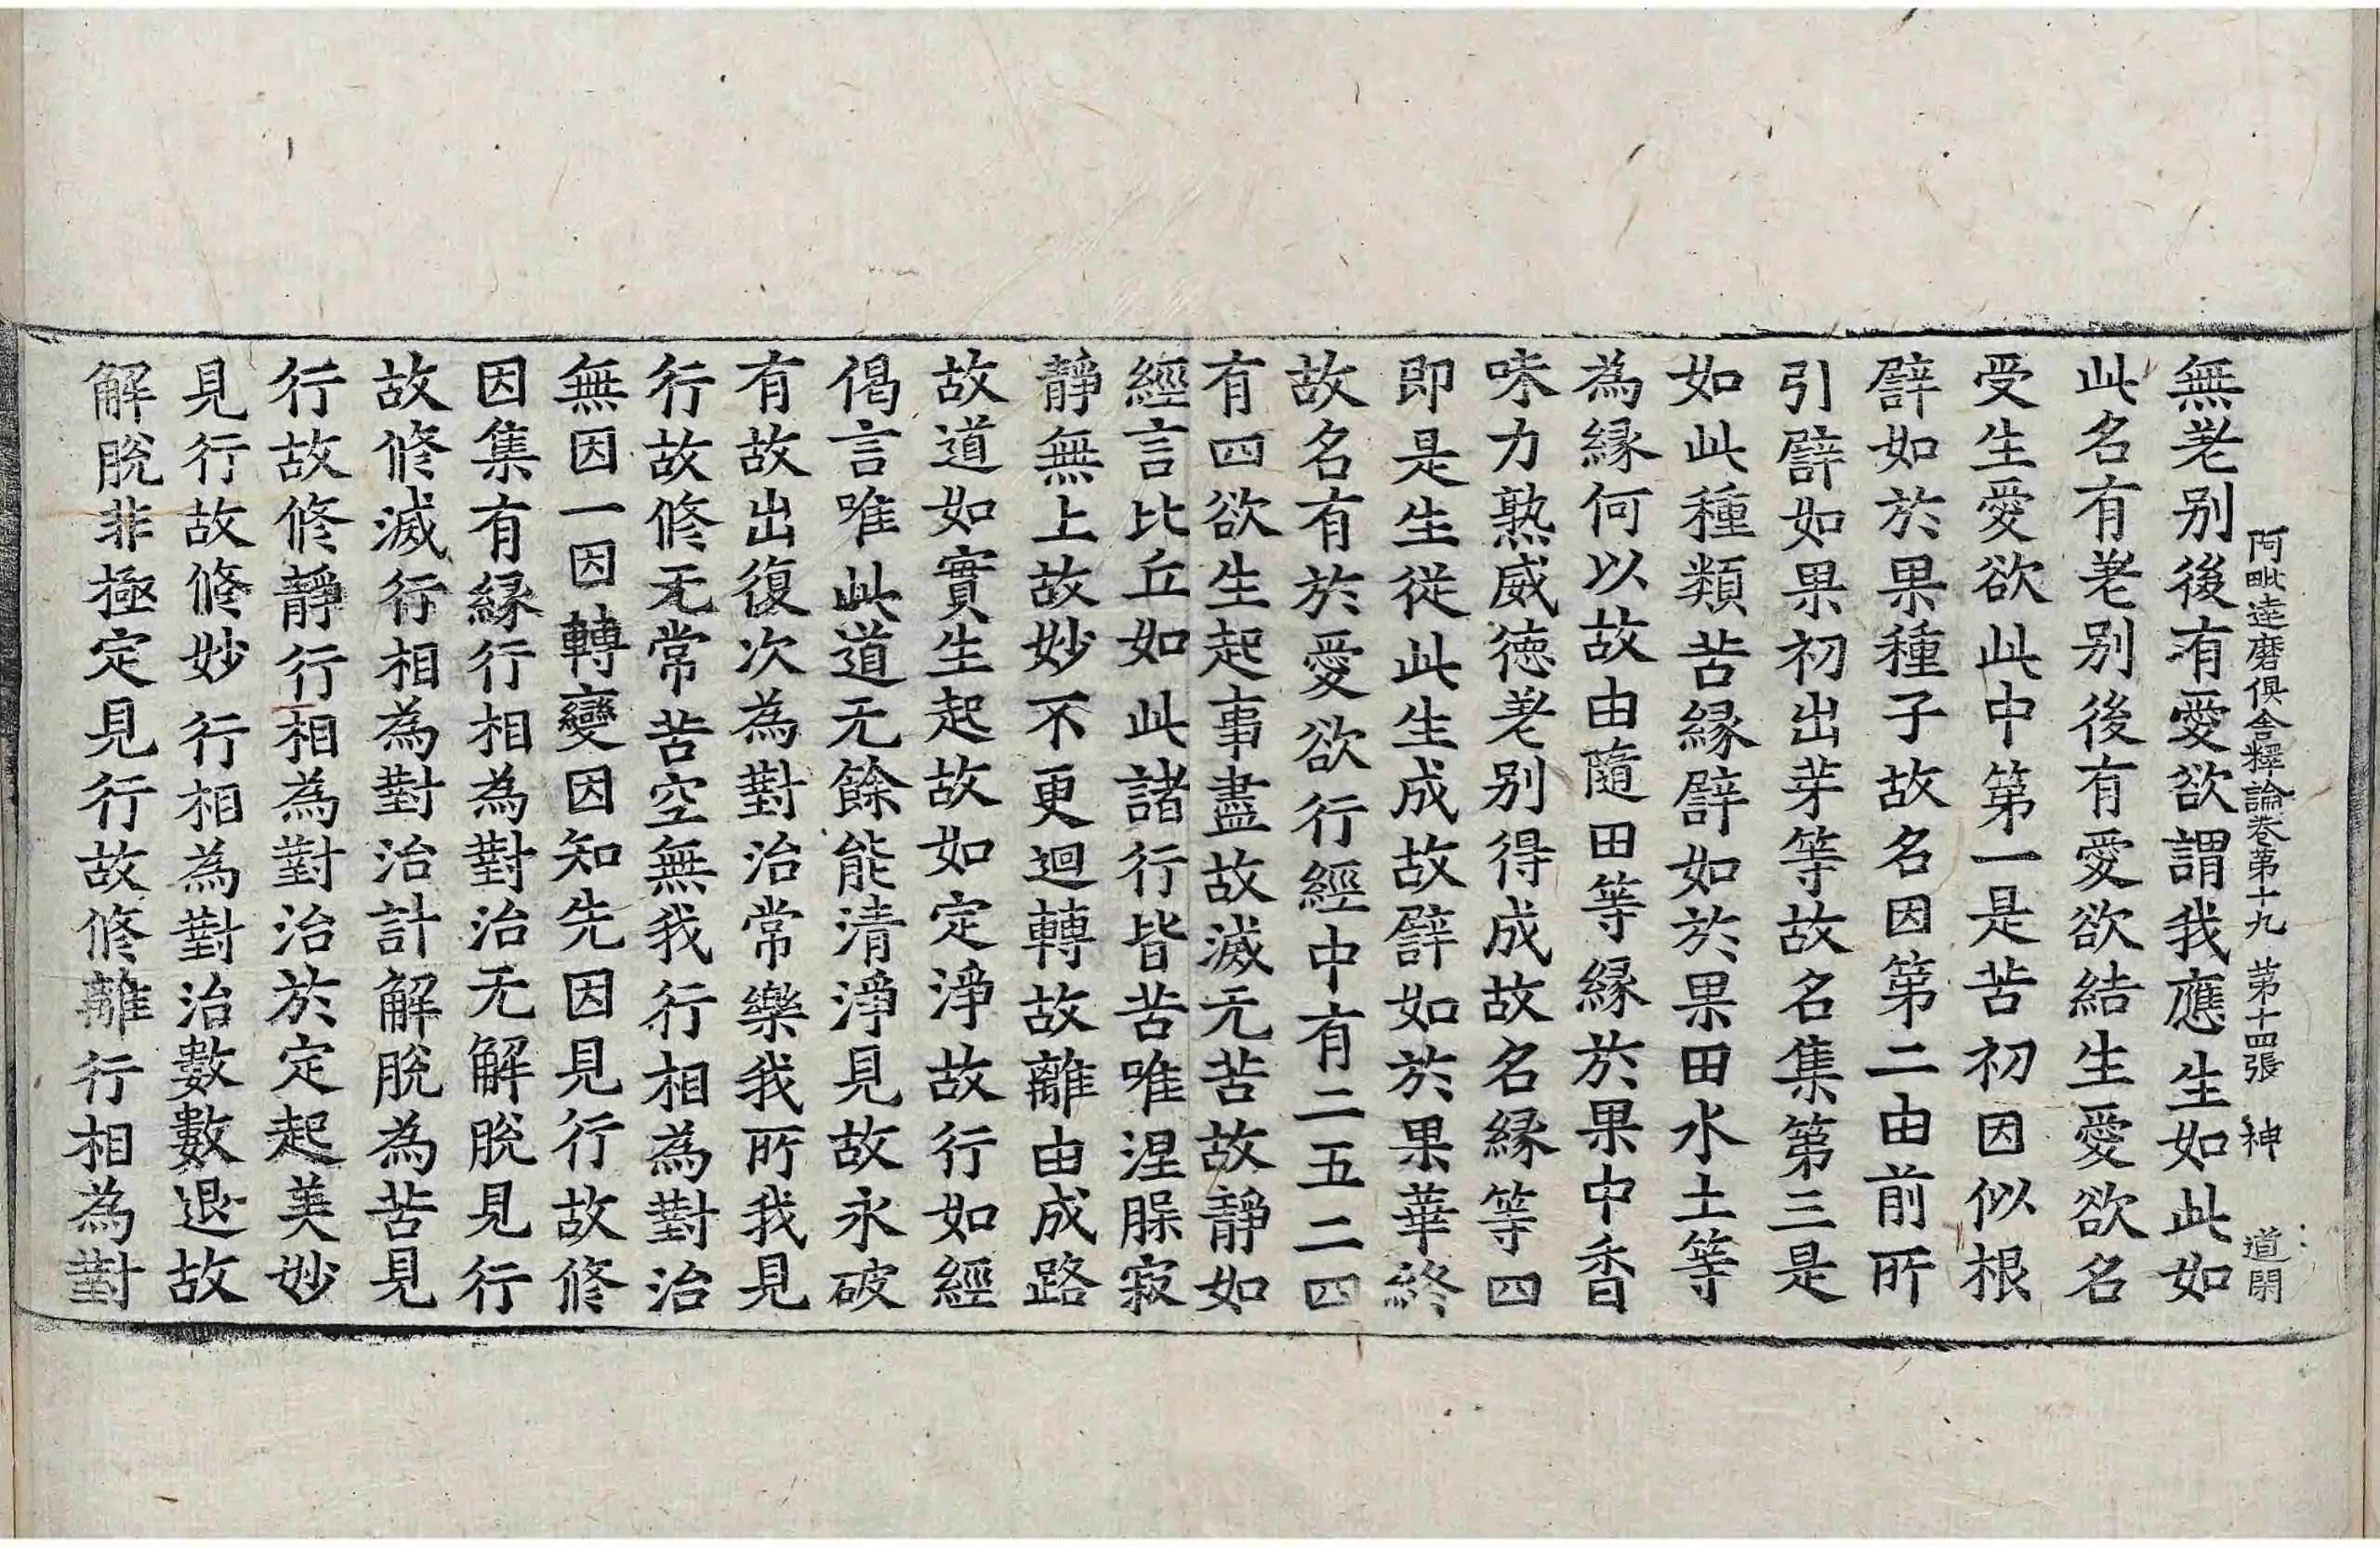 阿毗達磨俱舍釋論卷第十九 第十四張 神 道開
無差别後有愛欲謂我應生如此如
此名有差别後有愛欲結生愛欲名
受生愛欲此中第一是苦初因似根
譬如於果種子故名因第二由前所
引譬如果初出芽等故名集第三是
如此種類苦緣譬如於果田水土等
為緣何以故由隨田等緣於果中香
味力熟威德差别得成故名緣等四
即是生從此生成故譬如於果華終
故名有於愛欲行經中有二五二四
有四欲生起事盡故滅无苦故靜如
經言比丘如此諸行皆苦唯涅槃寂
靜無上故妙不更迴轉故離由成路
故道如實生起故如定淨故行如經
偈言唯此道无餘能清淨見故永破
有故出復次為對治常樂我所我見
行故修无常苦空無我行相為對治
無因一因轉變因知先因見行故修
因集有緣行相為對治无解脫見行
故修滅行相為對治計解脫為苦見
行故修靜行相為對治於定起美妙
見行故修妙行相為對治數數退故
解脫非極定見行故修離行相為對